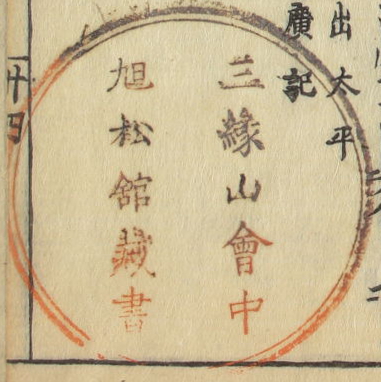 出太平
廣記
三緣山會中
旭松舘藏書
十四